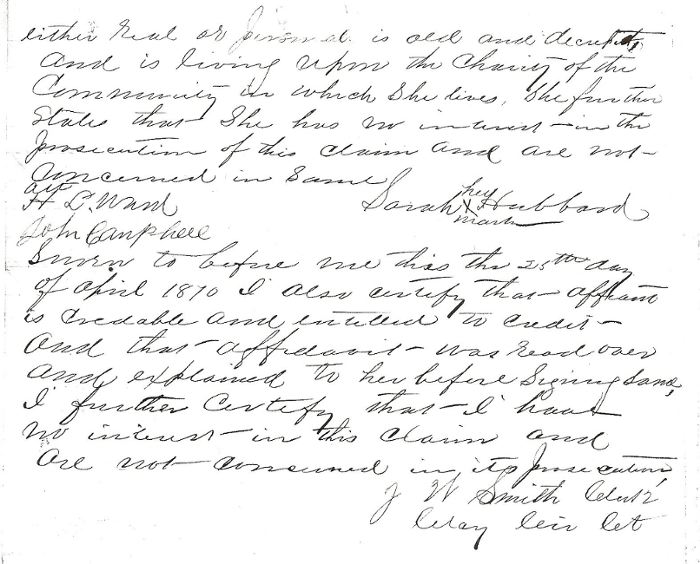 either Real or personal is old and decrepit,
and is living upon the Charity of the
Community in which She lives, She further
States that She has no interest in the
prosecution of this claim and are not
concerned in Same
att
H L Ward
Sarah her X mark Hubbard
John Campbell
Sworn to before me this the 25th day
of April 1870 I also certify that affiant
is credable and entitled to credit
and that affidavit was Read over
and explained to her before Signing Same,
I further Certify that I have
no interest in this claim and
are not concerned in its prosecution,
J W Smith Clerk
Clay Cir Ct